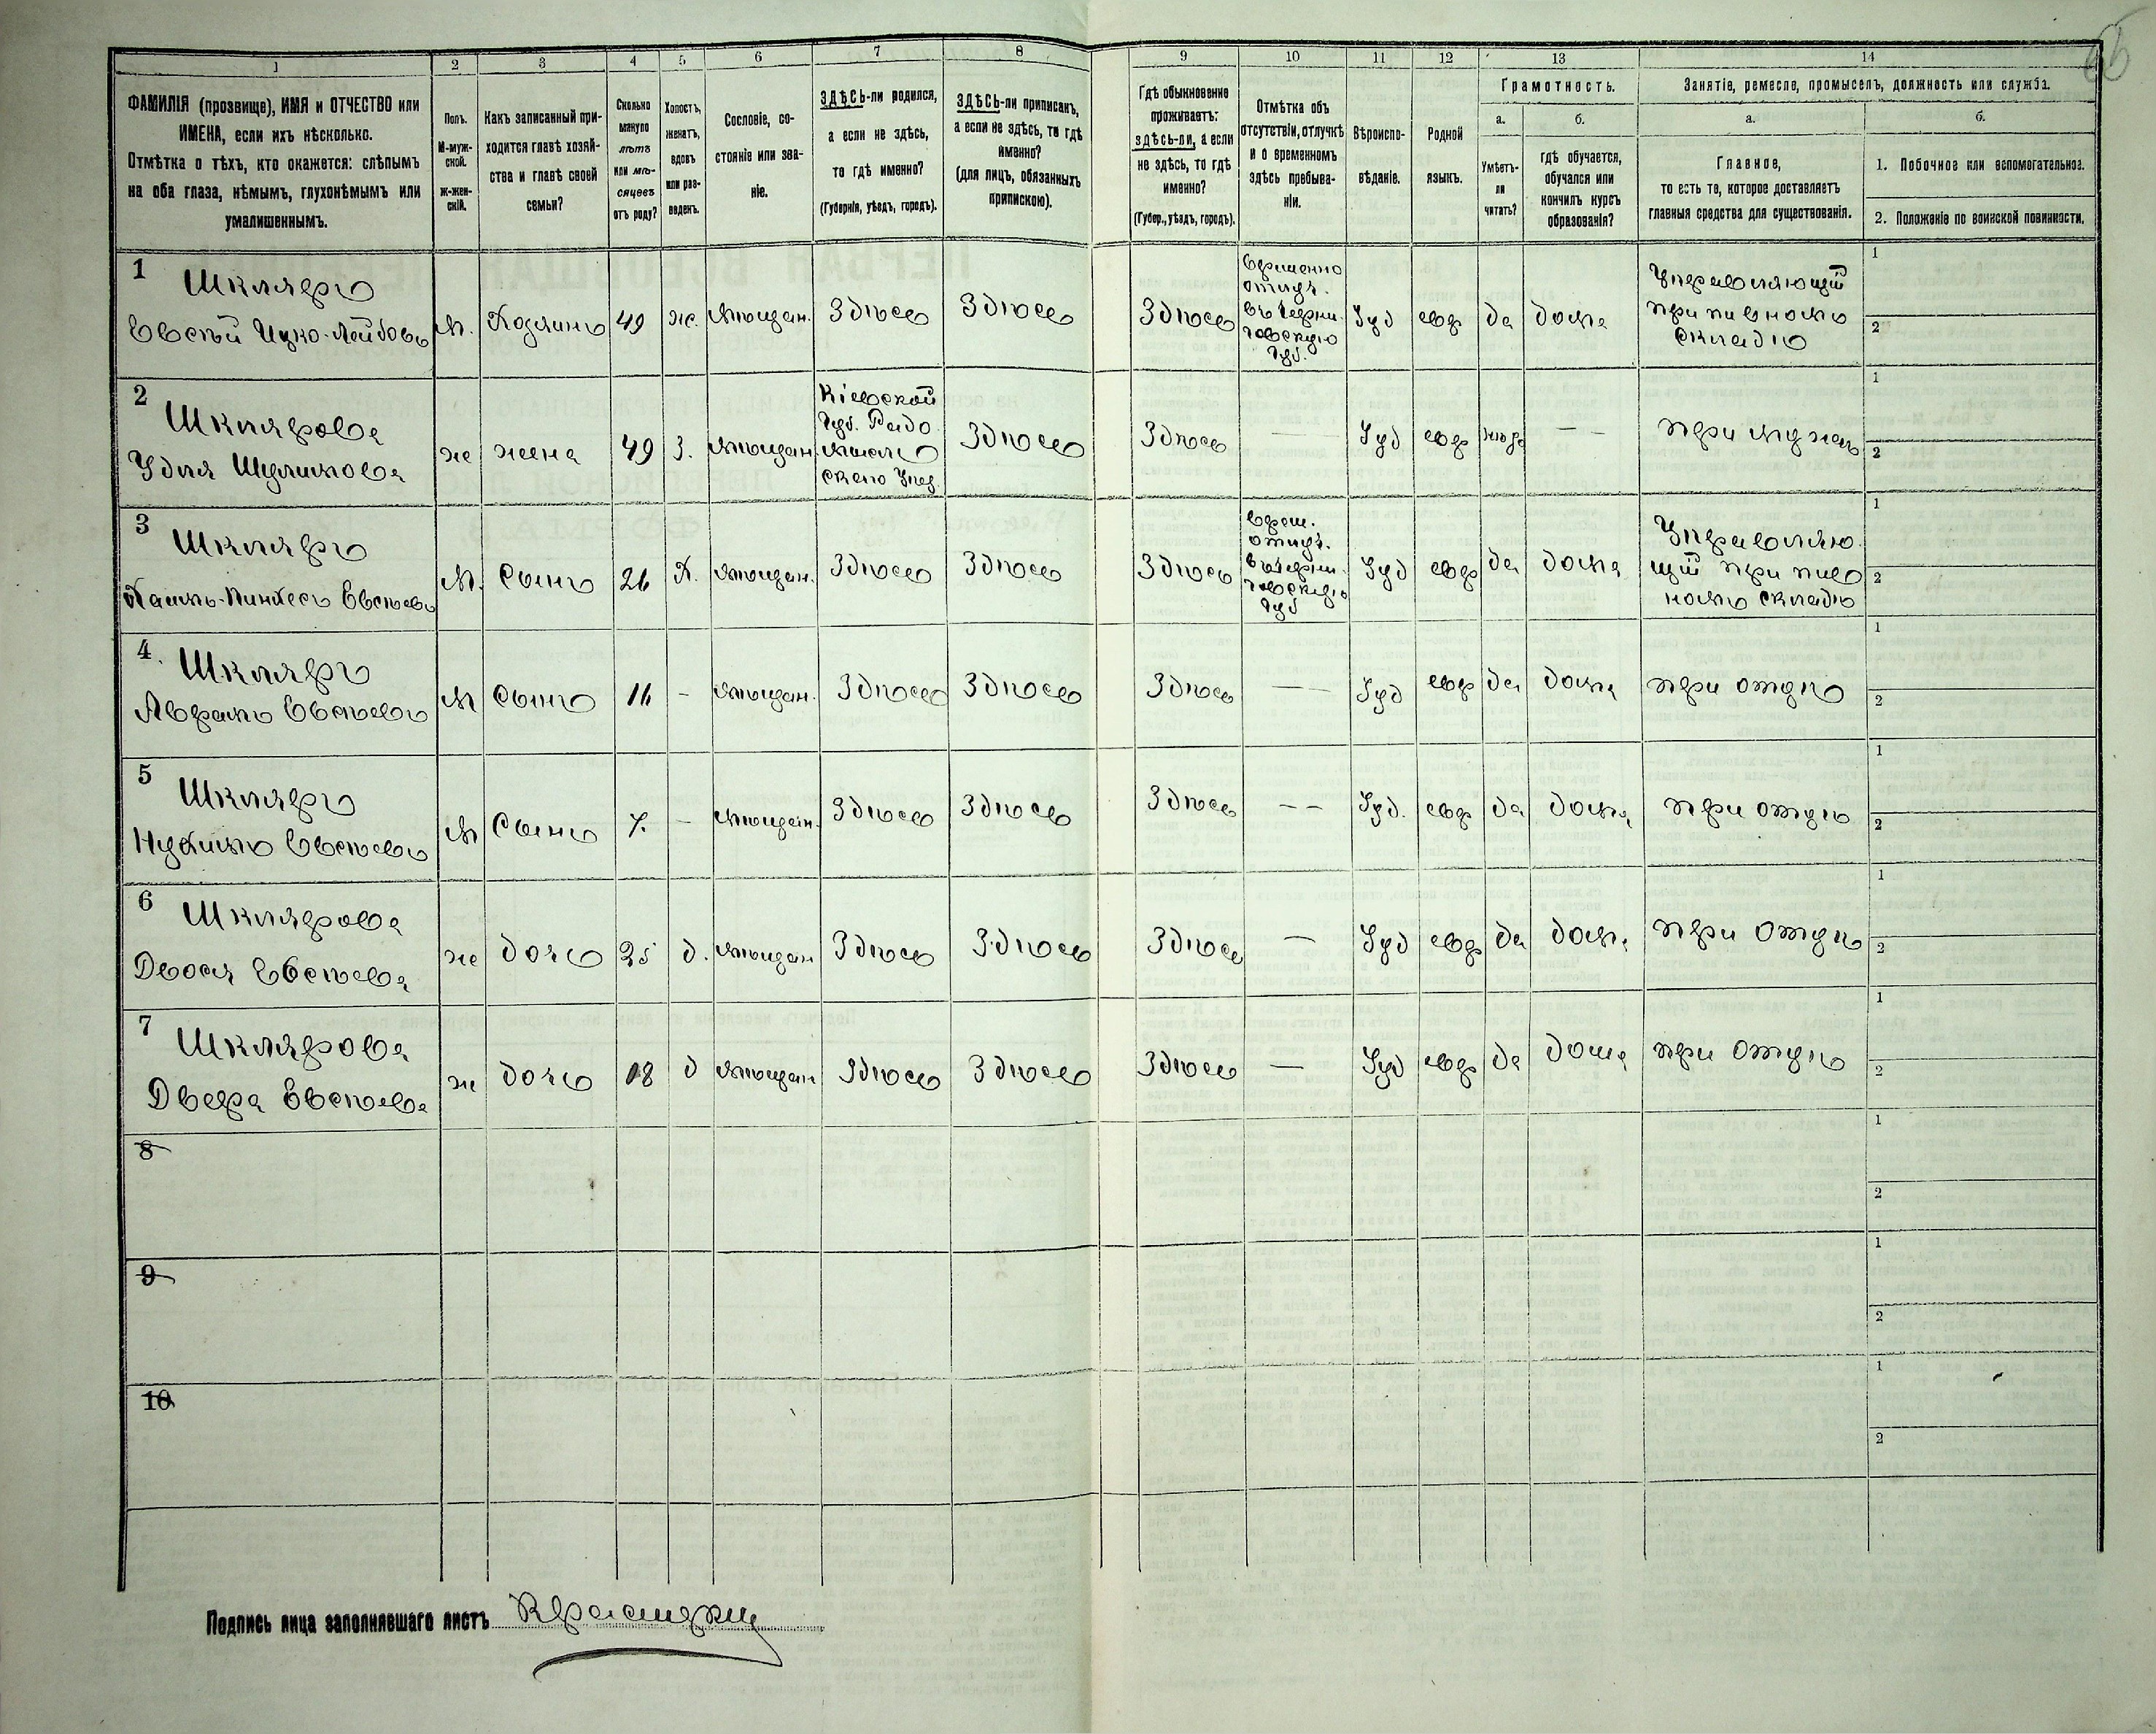 66
1 2 3 4 5 6 7 8 9 10 11 12 13 14
ФАМИЛІЯ (прозвище), ИМЯ и ОТЧЕСТВО или
ИМЕНА, если ихъ нѣсколько.
Отмѣтка о тѣхъ, кто окажется: слѣпымъ
на оба глаза, нѣмымъ, глухонѣмымъ или
умалишеннымъ.
Полъ.
М-муж-
ской.
Ж-жен-
скій.
Какъ записанный при-
ходится главѣ хозяй-
ства и главѣ своей
семьи?
Сколько
минуло
лѣтъ
или мѣ-
сяцевъ
отъ роду?
Холостъ,
женатъ,
вдовъ
или раз-
веденъ.
Сословіе, со-
стояніе или зва-
ніе.
ЗДѢСЬ-ли родился,
а если не здѣсь,
то гдѣ именно?
(Губернія, уѣздъ, городъ).
ЗДѢСЬ-ли приписанъ,
а если не здѣсь, то гдѣ
именно?
(для лицъ, обязанныхъ
припискою).
Гдѣ обыкновенно
проживаетъ:
здѣсь-ли, а если
не здѣсь, то гдѣ
именно?
(Губер., уѣздъ, городъ).
Отмѣтка объ
отсутствіи, отлучкѣ
и о временномъ
здѣсь пребыва-
ніи.
Вѣроиспо-
вѣданіе.
Родной
языкъ.
Грамотность.
а.
Умѣетъ-
ли
читать?
б.
гдѣ обучается,
обучался или
кончилъ курсъ
образованія?
Занятіе, ремесло, промыселъ, должность или служба.
а.
Главное,
то есть то, которое доставляетъ
главныя средства для существованія.
б.
1. Побочное или вспомогательное.
2. Положеніе по воинской повинности.
1
Шкляръ
Евсѣй Ицко-Лейбовъ
М. Хозяинъ 49 ж. мѣщан. Здѣсь Здѣсь Здѣсь
временно
отлуч.
въ Черни-
говскую
Губ.
Іуд евр да дома
Управляющій
при пивномъ
складѣ
1
2
2
Шклярова
Удля Шулимова
ж жена 49 З. мѣщан.
Кіевской
Губ. Радо
мысль
скаго Уѣз.
Здѣсь Здѣсь — Іуд евр нѣтъ — — при мужѣ
1
2
3
Шкляръ
Хаимъ-Пинхесъ Евсѣевъ
М. Сынъ 26 Х. мѣщан. Здѣсь Здѣсь Здѣсь
врем.
отлуч.
въ Черни-
говскую
Губ
Іуд евр да дома
Управляю
щій при пив
номъ складѣ
1
2
4.
Шкляръ
Аврамъ Евсѣевъ
М Сынъ 16 - мѣщан. Здѣсь Здѣсь Здѣсь — — Іуд евр да дома при отцѣ
1
2
5
Шкляръ
Нухимъ Евсѣевъ
М Сынъ 7. - мѣщан. Здѣсь Здѣсь Здѣсь — — Іуд. евр да дома при отцѣ
1
2
6
Шклярова
Двося Евсѣева
ж дочь 25 д. мѣщан Здѣсь Здѣсь Здѣсь — Іуд евр да дома при отцѣ
1
2
7
Шклярова
Двейра Евсѣева
ж дочь 18 д мѣщан Здѣсь Здѣсь Здѣсь — Іуд евр да дома при отцѣ
1
2
8
1
2
9
1
2
10
1
2
Подпись лица заполнявшаго листъ